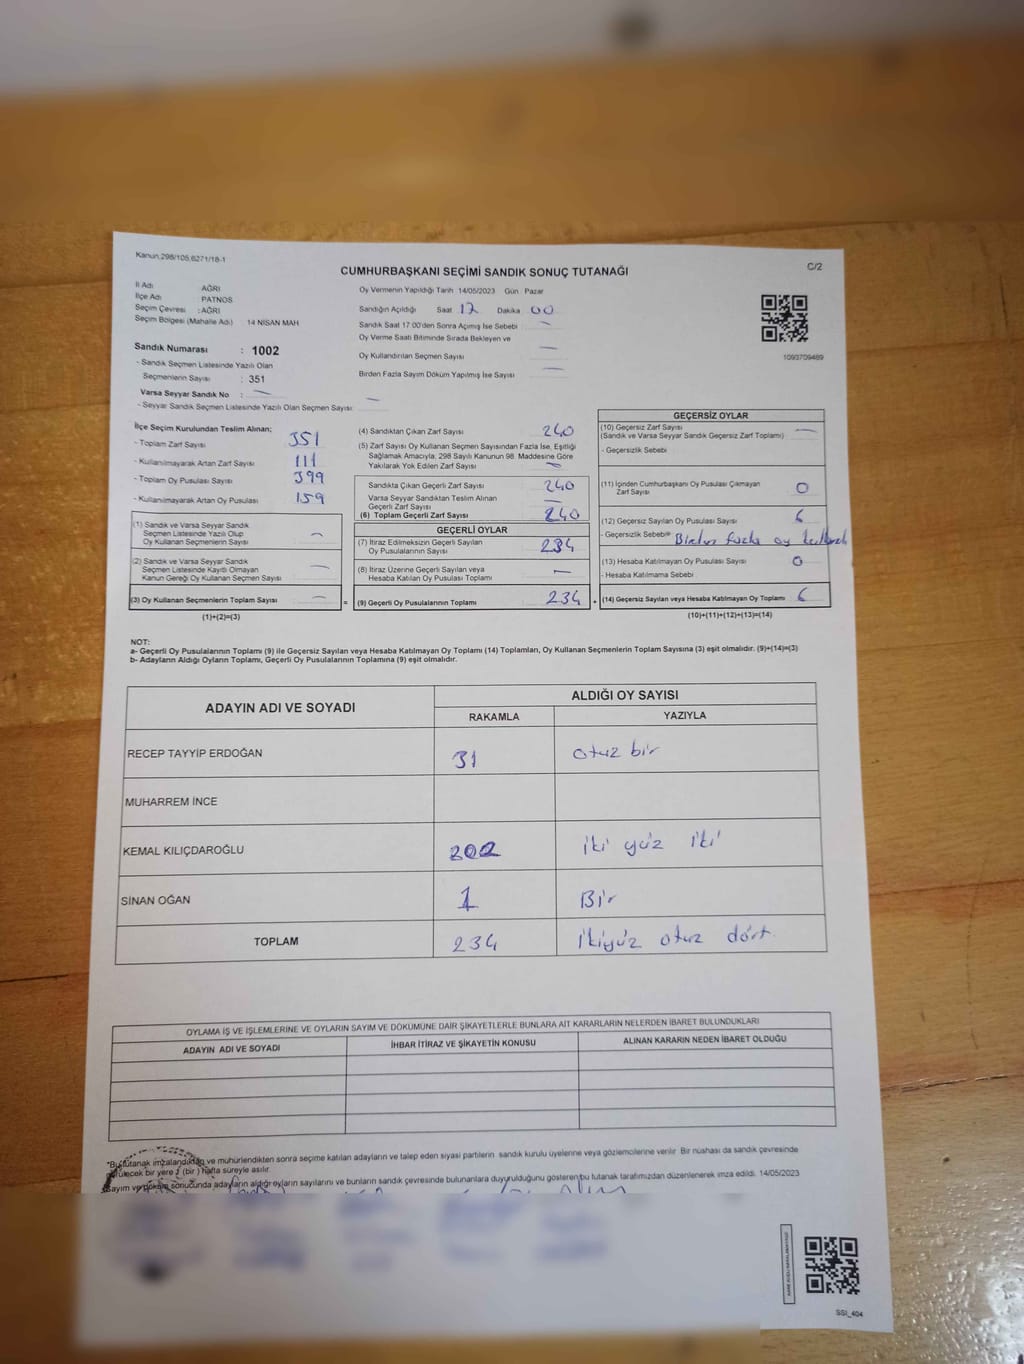 Kanun.298/105,6271/18-1
C/2
CUMHURBAŞKANI SEÇİMİ SANDIK SONUÇ TUTANAĞI
İl Adı AĞRI
İlçe Adı PATNOS
Seçim Çevresi :AĞRI
Seçim Bölgesi (Mahalle Adı) 14 NİSAN MAH
Sandık Numarası : 1002
- Sandık Seçmen Listesinde Yazılı Olan
Seçmenlerin Sayısı : 351
Varsa Seyyar Sandık No : —
- Seyyar Sandık Seçmen Listesinde Yazılı Olan Seçmen Sayısı: —
Oy Vermenin Yapıldığı Tarih 14/05/2023 Gün Pazar
Sandığın Açıldığı Saat 17 Dakika 00
Sandık Saat 17:00'den Sonra Açımış İse Sebebi : —
Oy Verme Saati Bitiminde Sırada Bekleyen ve
Oy Kullandırılan Seçmen Sayısı —
Birden Fazla Sayım Döküm Yapılmış İse Sayısı —
1093709489
İlçe Seçim Kurulundan Teslim Alınan;
- Toplam Zarf Sayısı 351
- Kullanılmayarak Artan Zarf Sayısı 111
- Toplam Oy Pusulası Sayısı 399
- Kullanılmayarak Artan Oy Pusulası 159
(1) Sandık ve Varsa Seyyar Sandık
Seçmen Listesinde Yazılı Olup
Oy Kullanan Seçmenlerin Sayısı —
(2) Sandık ve Varsa Seyyar Sandık
Seçmen Listesinde Kayıtlı Olmayan
Kanun Gereği Oy Kullanan Seçmen Sayısı —
(3) Oy Kullanan Seçmenlerin Toplam Sayısı — =
(1)+(2)=(3)
(4) Sandıktan Çıkan Zarf Sayısı 240
(5) Zarf Sayısı Oy Kullanan Seçmen Sayısından Fazla İse, Eşitliği
Sağlamak Amacıyla; 298 Sayılı Kanunun 98. Maddesine Göre
Yakılarak Yok Edilen Zarf Sayısı —
Sandıkta Çıkan Geçerli Zarf Sayısı 240
Varsa Seyyar Sandıktan Teslim Alınan
Geçerli Zarf Sayısı —
(6) Toplam Geçerli Zarf Sayısı 240
GEÇERLİ OYLAR
(7) İtiraz Edilmeksizin Geçerli Sayılan
Oy Pusulalarının Sayısı 234
(8) İtiraz Üzerine Geçerli Sayılan veya
Hesaba Katılan Oy Pusulası Toplamı —
(9) Geçerli Oy Pusulalarının Toplamı 234 +
GEÇERSİZ OYLAR
(10) Geçersiz Zarf Sayısı
(Sandık ve Varsa Seyyar Sandık Geçersiz Zarf Toplamı) —
- Geçersizlik Sebebi
(11) İçinden Cumhurbaşkanı Oy Pusulası Çıkmayan
Zarf Sayısı 0
(12) Geçersiz Sayılan Oy Pusulası Sayısı 6
- Geçersizlik Sebebi* Birden fazla oy
(13) Hesaba Katılmayan Oy Pusulası Sayısı 0
- Hesaba Katılmama Sebebi
(14) Geçersiz Sayılan veya Hesaba Katılmayan Oy Toplamı 6
(10)+(11)+(12)+(13)=(14)
NOT:
a- Geçerli Oy Pusulalarının Toplamı (9) ile Geçersiz Sayılan veya Hesaba Katılmayan Oy Toplamı (14) Toplamları, Oy Kullanan Seçmenlerin Toplam Sayısına (3) eşit olmalıdır. (9)+(14)=(3)
b- Adayların Aldığı Oyların Toplamı, Geçerli Oy Pusulalarının Toplamına (9) eşit olmalıdır.
ADAYIN ADI VE SOYADI ALDIĞI OY SAYISI
RAKAMLA YAZIYLA
RECEP TAYYİP ERDOĞAN 31 otuz bir
MUHARREM İNCE
KEMAL KILIÇDAROĞLU 202 iki yüz iki
SİNAN OĞAN 1 Bir
TOPLAM 234 ikiyüz otuz dört
OYLAMA İŞ VE İŞLEMLERİNE VE OYLARIN SAYIM VE DÖKÜMÜNE DAİR ŞİKAYETLERLE BUNLARA AİT KARARLARIN NELERDEN İBARET BULUNDUKLARI
ADAYIN ADI VE SOYADI İHBAR İTİRAZ VE ŞİKAYETİN KONUSU ALINAN KARARIN NEDEN İBARET OLDUĞU
*Bu tutanak imzalandıktan ve mühürlendikten sonra seçime katılan adayların ve talep eden siyasi partilerin sandık kurulu üyelerine veya gözlemcilerine verilir. Bir nüshası da sandık çevresinde
görülecek bir yere 1 (bir) hafta süreyle asılır.
Sayım ve döküm sonucunda adayların aldığı oyların sayılarını ve bunların sandık çevresinde bulunanlara duyurulduğunu gösteren bu tutanak tarafımızdan düzenlenerek imza edildi. 14/05/2023
SSI_404